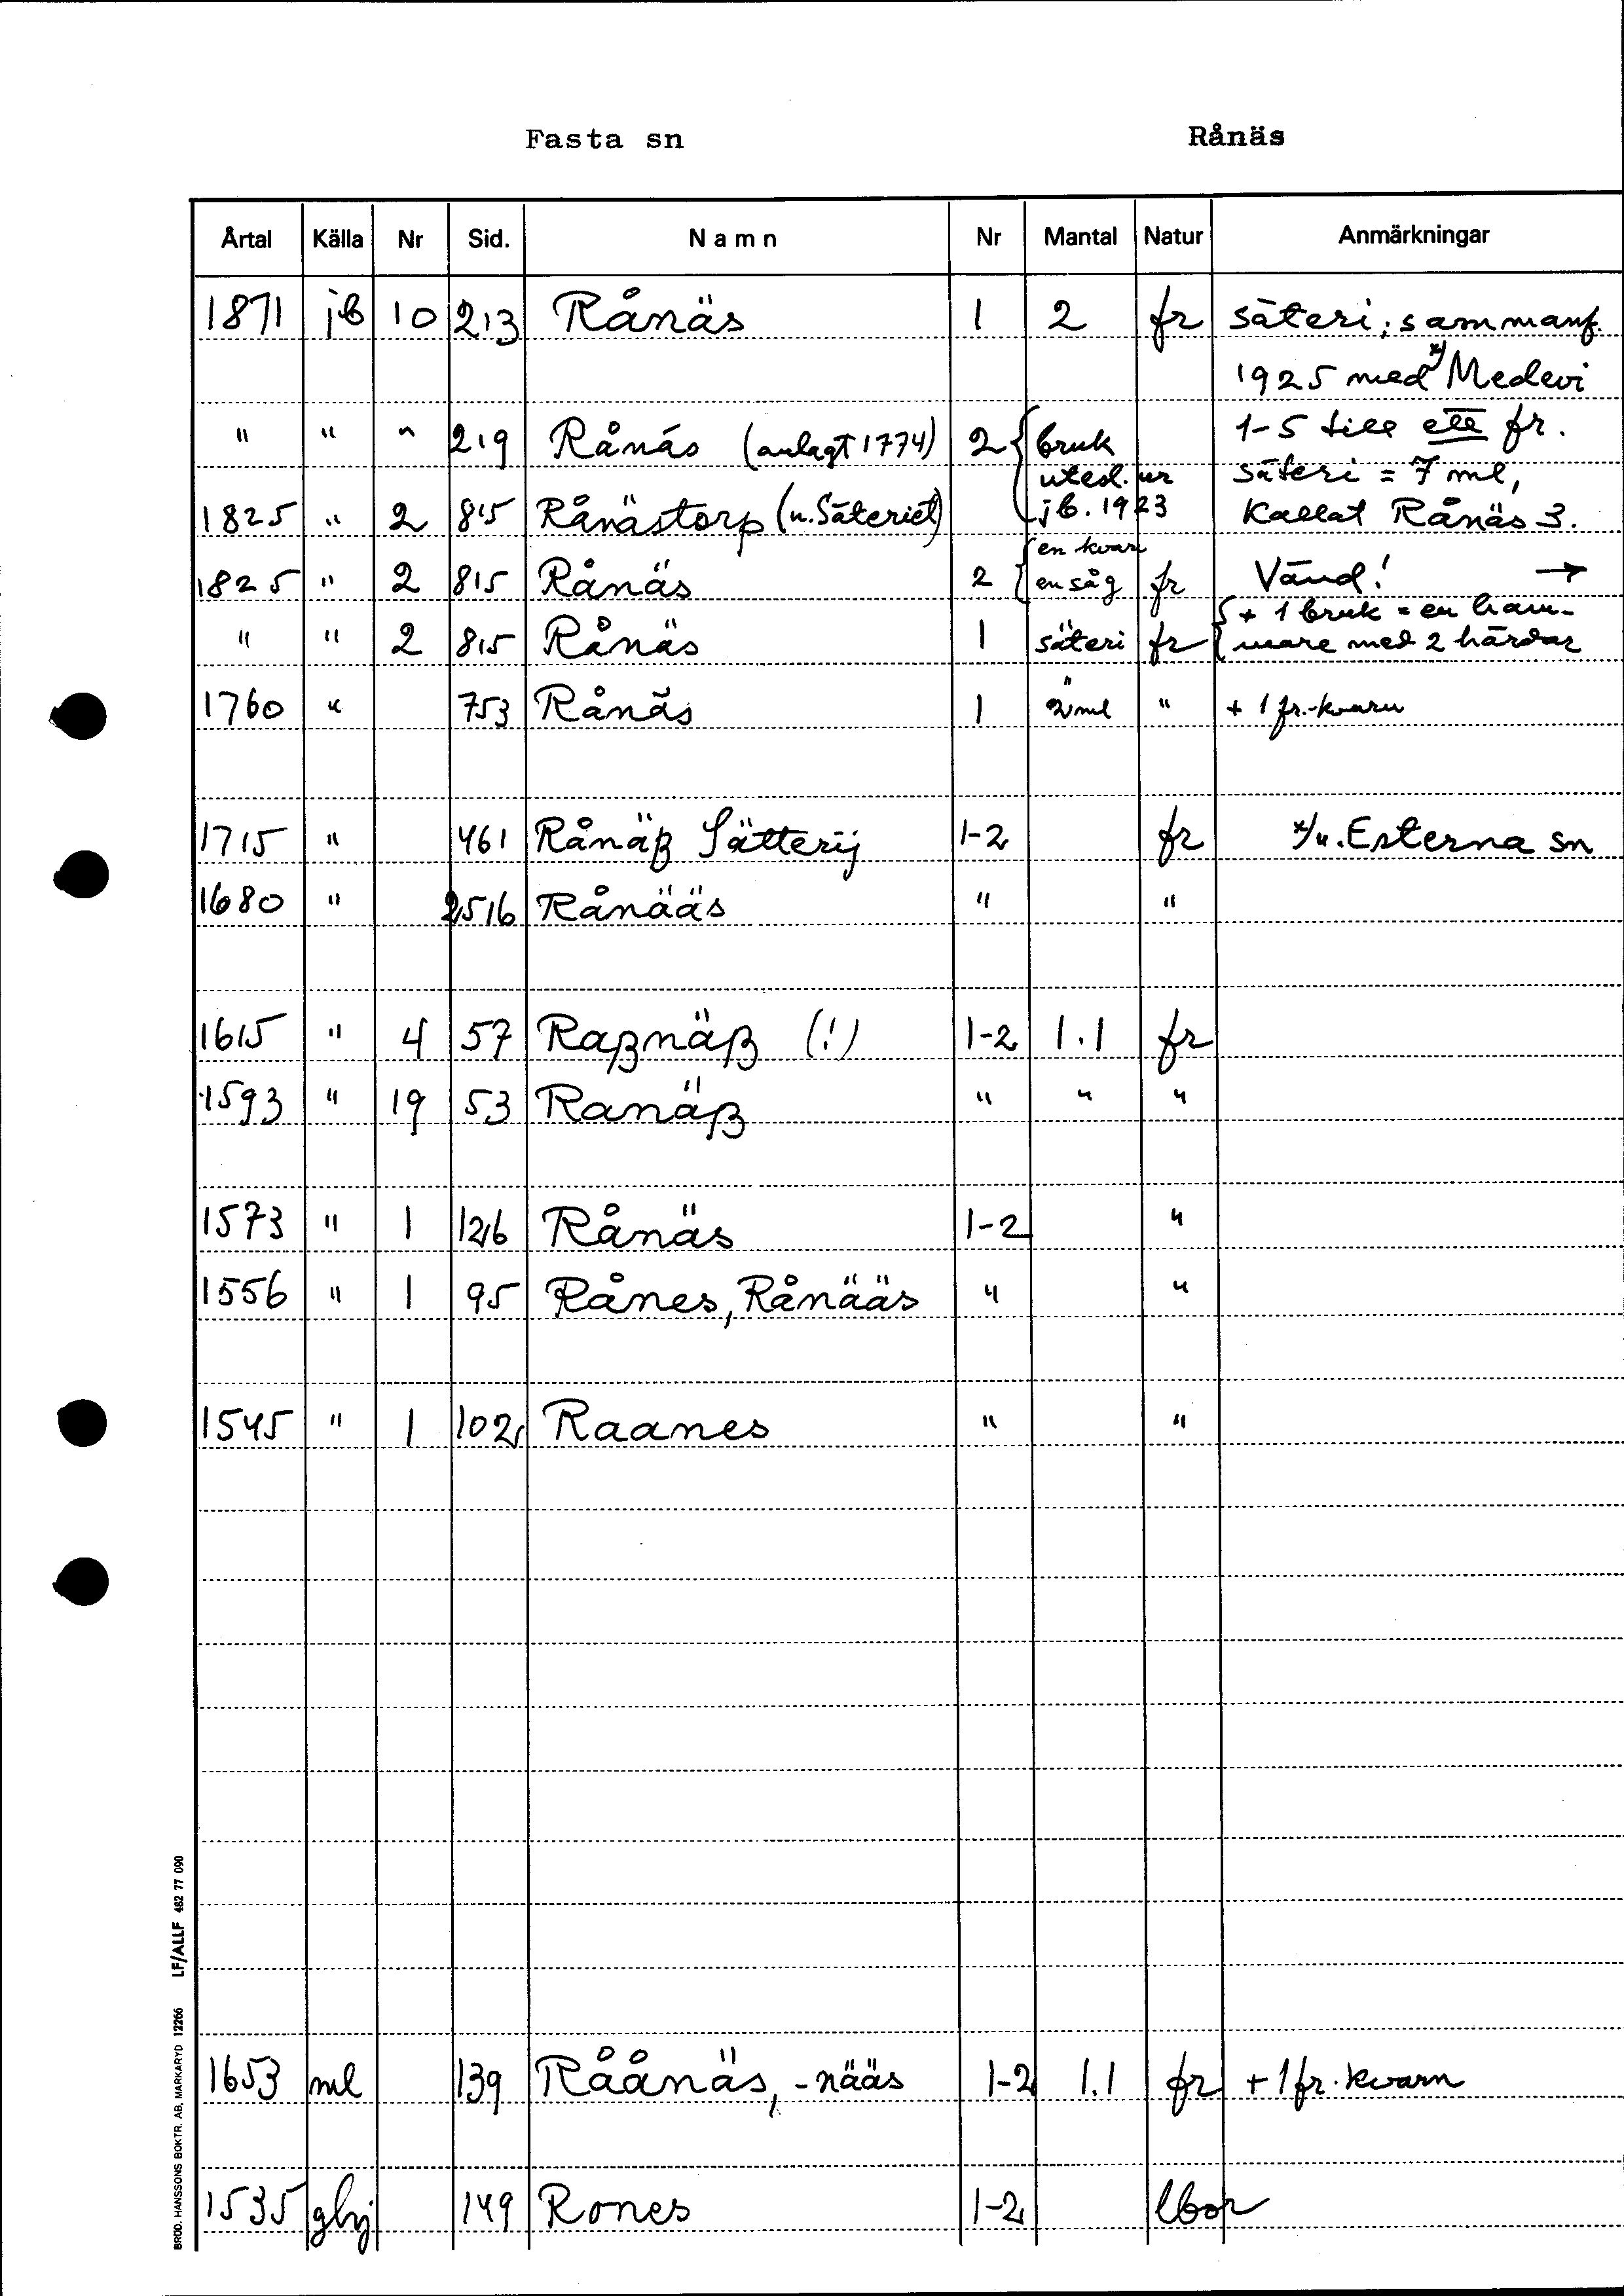 Fasta sn Rånäs
Årtal Källa Nr Sid. Namn Nr Mantal Natur Anmärkningar
1871 jb 10 213 Rånäs 1 2 fr säteri; sammanf.
1925 med x) Medevi
" " " 219 Rånäs (anlagt 1774) 2 bruk 1-5 till ett fr.
utesl. ur säteri = 7 ml,
1825 " 2 815 Rånästorp (u. Säteriet) jb. 1923 Kallat Rånäs 3.
en kvarn
1825 " 2 815 Rånäs 2 en såg fr Vänd! →
+ 1 bruk = en ham-
" " 2 815 Rånäs 1 säteri fr mare med 2 härdar
1760 " 753 Rånäs 1 " 2 ml " + 1 fr.-kvarn
1715 " 461 Rånäß Sätterij 1-2 fr x/u. Esterna sn
1680 " 2516 Rånääs " "
1615 " 4 57 Raßnäß (!) 1-2 1.1 fr
1593 " 19 53 Ranäß " " "
1573 " 1 126 Rånäs 1-2 "
1556 " 1 95 Rånes, Rånääs " "
1545 " 1 102 Raanes " "
1653 ml 139 Råånäs, -nääs 1-2 1.1 fr + 1 fr. kvarn
1535 ghj 149 Rones 1-2 lbor
BRÖD. HANSSONS BOKTR. AB, MARKARYD 12266 LF/ALLF 462 77 090